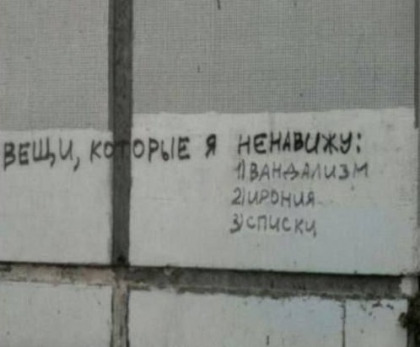 ВЕЩИ, КОТОРЫЕ Я НЕНАВИЖУ:
1) ВАНДАЛИЗМ
2) ИРОНИЯ
3) СПИСКИ